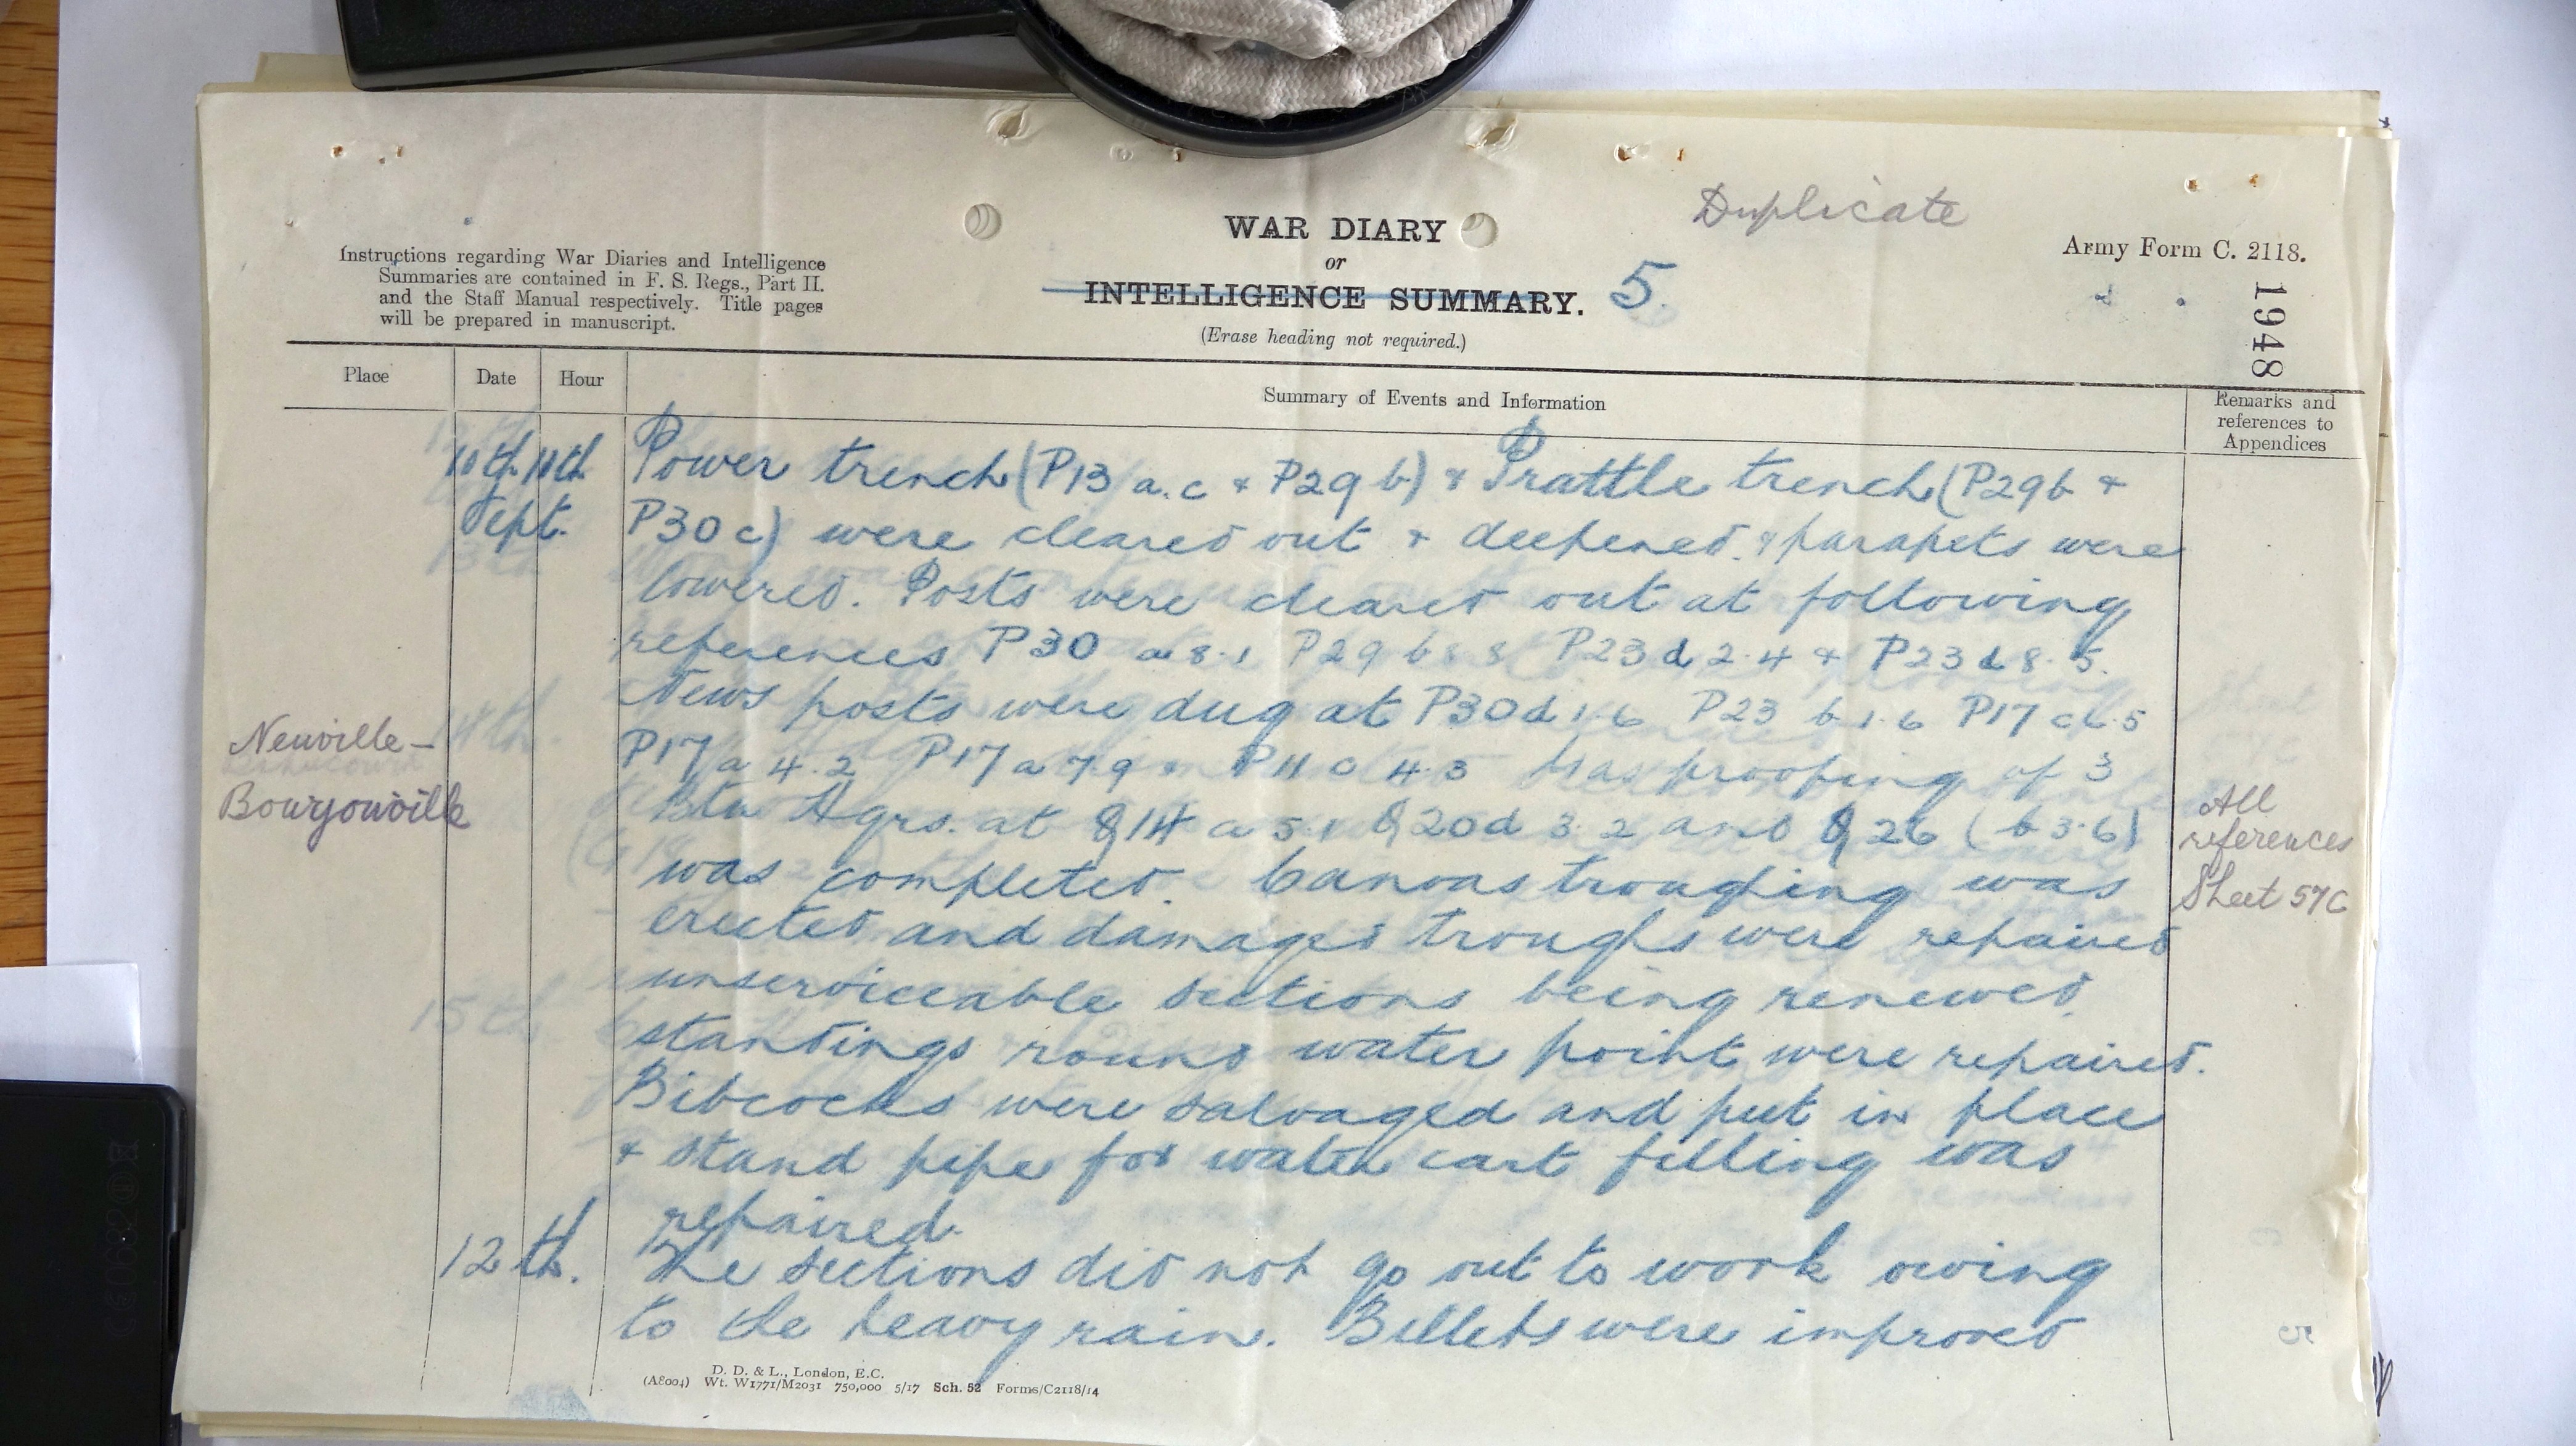 Duplicate
WAR DIARY
or
INTELLIGENCE SUMMARY.
5.
(Erase heading not required.)
Army Form C. 2118.
1948
Instructions regarding War Diaries and Intelligence
Summaries are contained in F. S. Regs., Part II.
and the Staff Manual respectively. Title pages
will be prepared in manuscript.
Place
Date
Hour
Summary of Events and Information
Remarks and
references to
Appendices
10th 11th
Sept.
Power trench (P13 a.c + P29 b) & Prattle trench (P29b +
P30 c) were cleared out + deepened. & parapets were
lowered. Posts were cleared out at following
references P30 a 8.1 P29 b 8 8 P23 d 2.4 + P23 d 8.5.
News posts were dug at P30d 1.6 P23 b 1.6 P17 c 6.5
P17 a 4.2 P17 a 7 9 + P11 c 4.3 Gas proofing of 3
Btn Hqrs. at Q14 a 5.1 Q20d 3.2 and Q26 (b 3.6)
was completed. Canvas troughing was
erected and damaged troughs were repaired
unserviceable sections being renewed.
standings round water point were repaired.
Bibcocks were salvaged and put in place
+ stand pipe for water cart filling was
repaired.
Neuville-
Bourjonville
All
references
Sheet 57C
12th.
The sections did not go out to work owing
to the heavy rain. Billets were improved
D. D. & L., London, E.C.
(A8004) Wt. W1771/M2031 750,000 5/17 Sch. 52 Forms/C2118/14